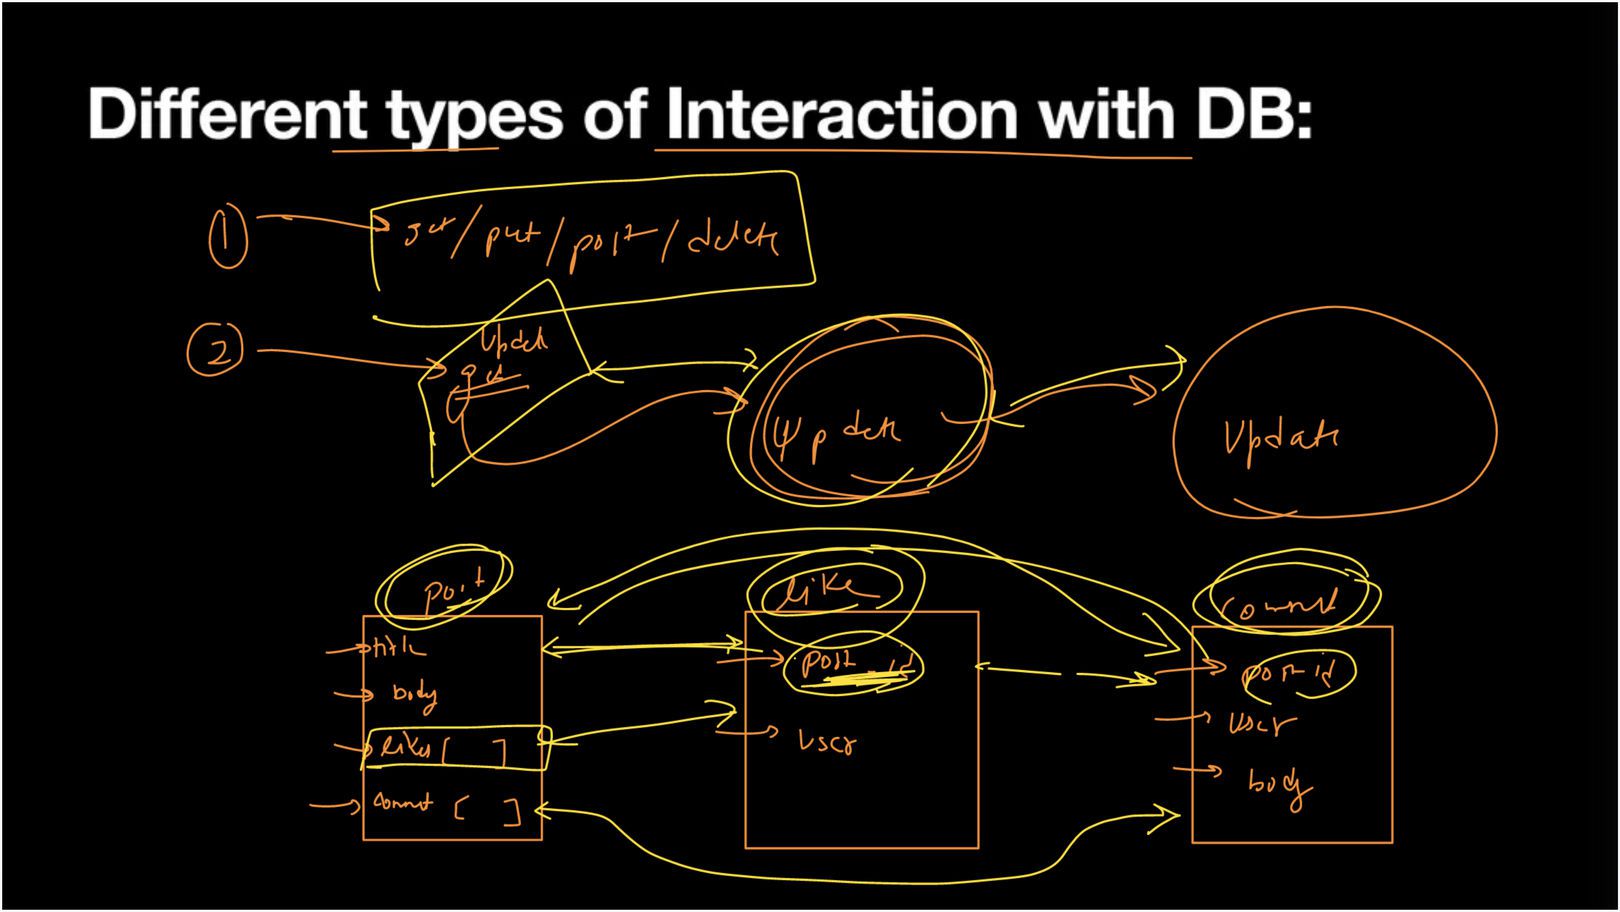 Different types of Interaction with DB:
1
get/put/post/delete
2
Update
get
Update
Update
post
title
body
likes [ ]
Commt [ ]
like
post_id
User
Commnt
post-id
User
body